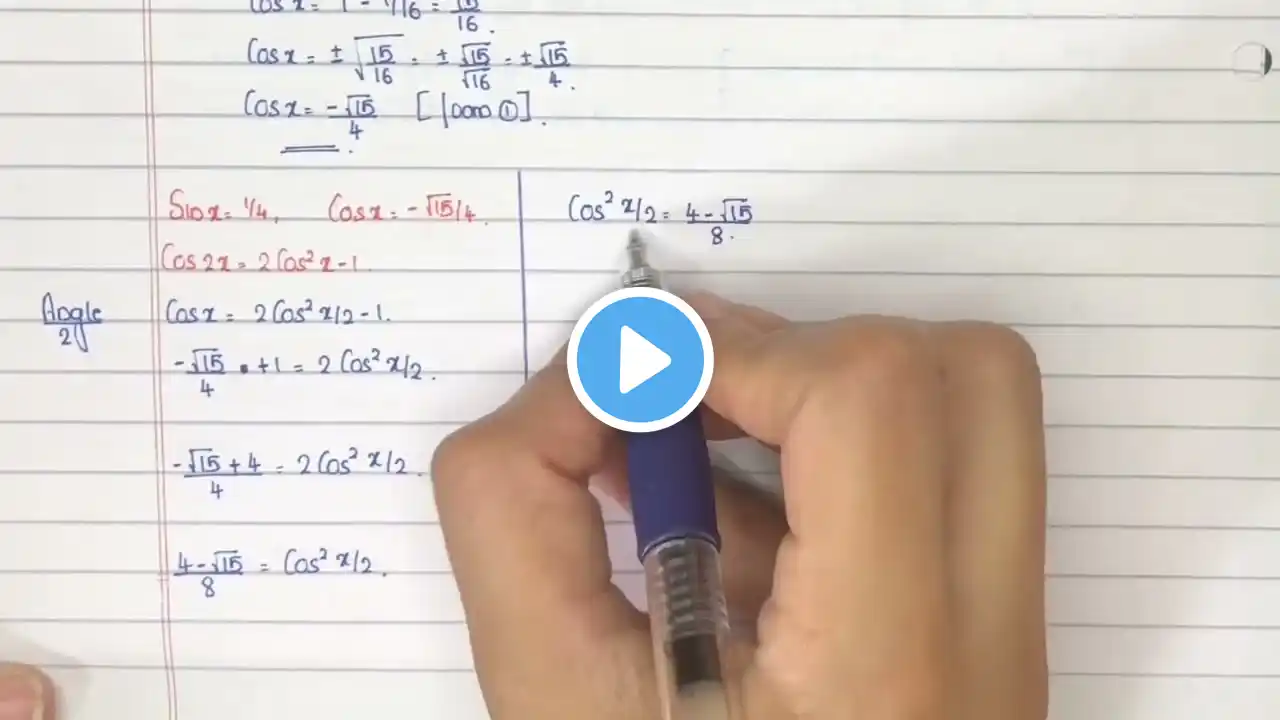 Cos x = ± √15/16 = ± √15/√16 = ± √15/4.
Cos x = -√15/4 [from ①].
Sin x = 1/4, Cos x = -√15/4.
Cos 2x = 2 Cos² x - 1.
Angle/2
Cos x = 2 Cos² x/2 - 1.
-√15/4 + 1 = 2 Cos² x/2.
-√15 + 4/4 = 2 Cos² x/2.
4 - √15/8 = Cos² x/2.
Cos² x/2 = 4 - √15/8.